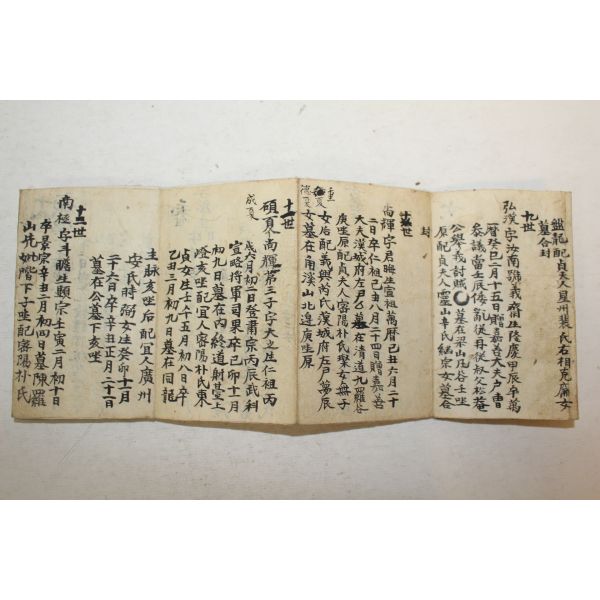 盤龍配貞夫人星州裴氏右相克廉女
墓合封
九世
弘漢字汝南號義齋生隆慶甲辰卒萬
曆癸巳二月十五日贈嘉善大夫戶曹
參議當壬辰倭亂從再從叔父松菴
公擧義討賊墓在梁山凡谷 坐
原配貞夫人靈山辛氏 宗女墓合
封
十世
尙輝字君晦生宣祖萬曆己丑六月二十
二日卒仁祖己丑八月二十四日贈嘉善
大夫漢城府左尹乙 墓在淸道九羅谷
庚坐原配貞夫人密陽朴氏 女無子
女后配義興芮氏漢城府左尹 辰
女墓在角溪山北 庚坐原
十一世
碩夏尙輝第三子字大 生仁祖丙
戌六月初二日登肅宗丙辰武科
宣略將軍司果卒己卯十一月
初九日墓在內終道射基上
嶝亥坐配宜人密陽朴氏東
貞女生壬午五月初八日卒
乙丑三月初九日墓在同龍
主脉亥坐后配宜人廣州
安氏時弼女生癸卯十二月
二十六日卒辛丑正月二十日
墓在公墓下亥坐
十二世
南極字斗瞻生顯宗壬寅二月初十日
卒景宗辛丑二月初四日墓陳羅
山先妣階下子坐配密陽朴氏